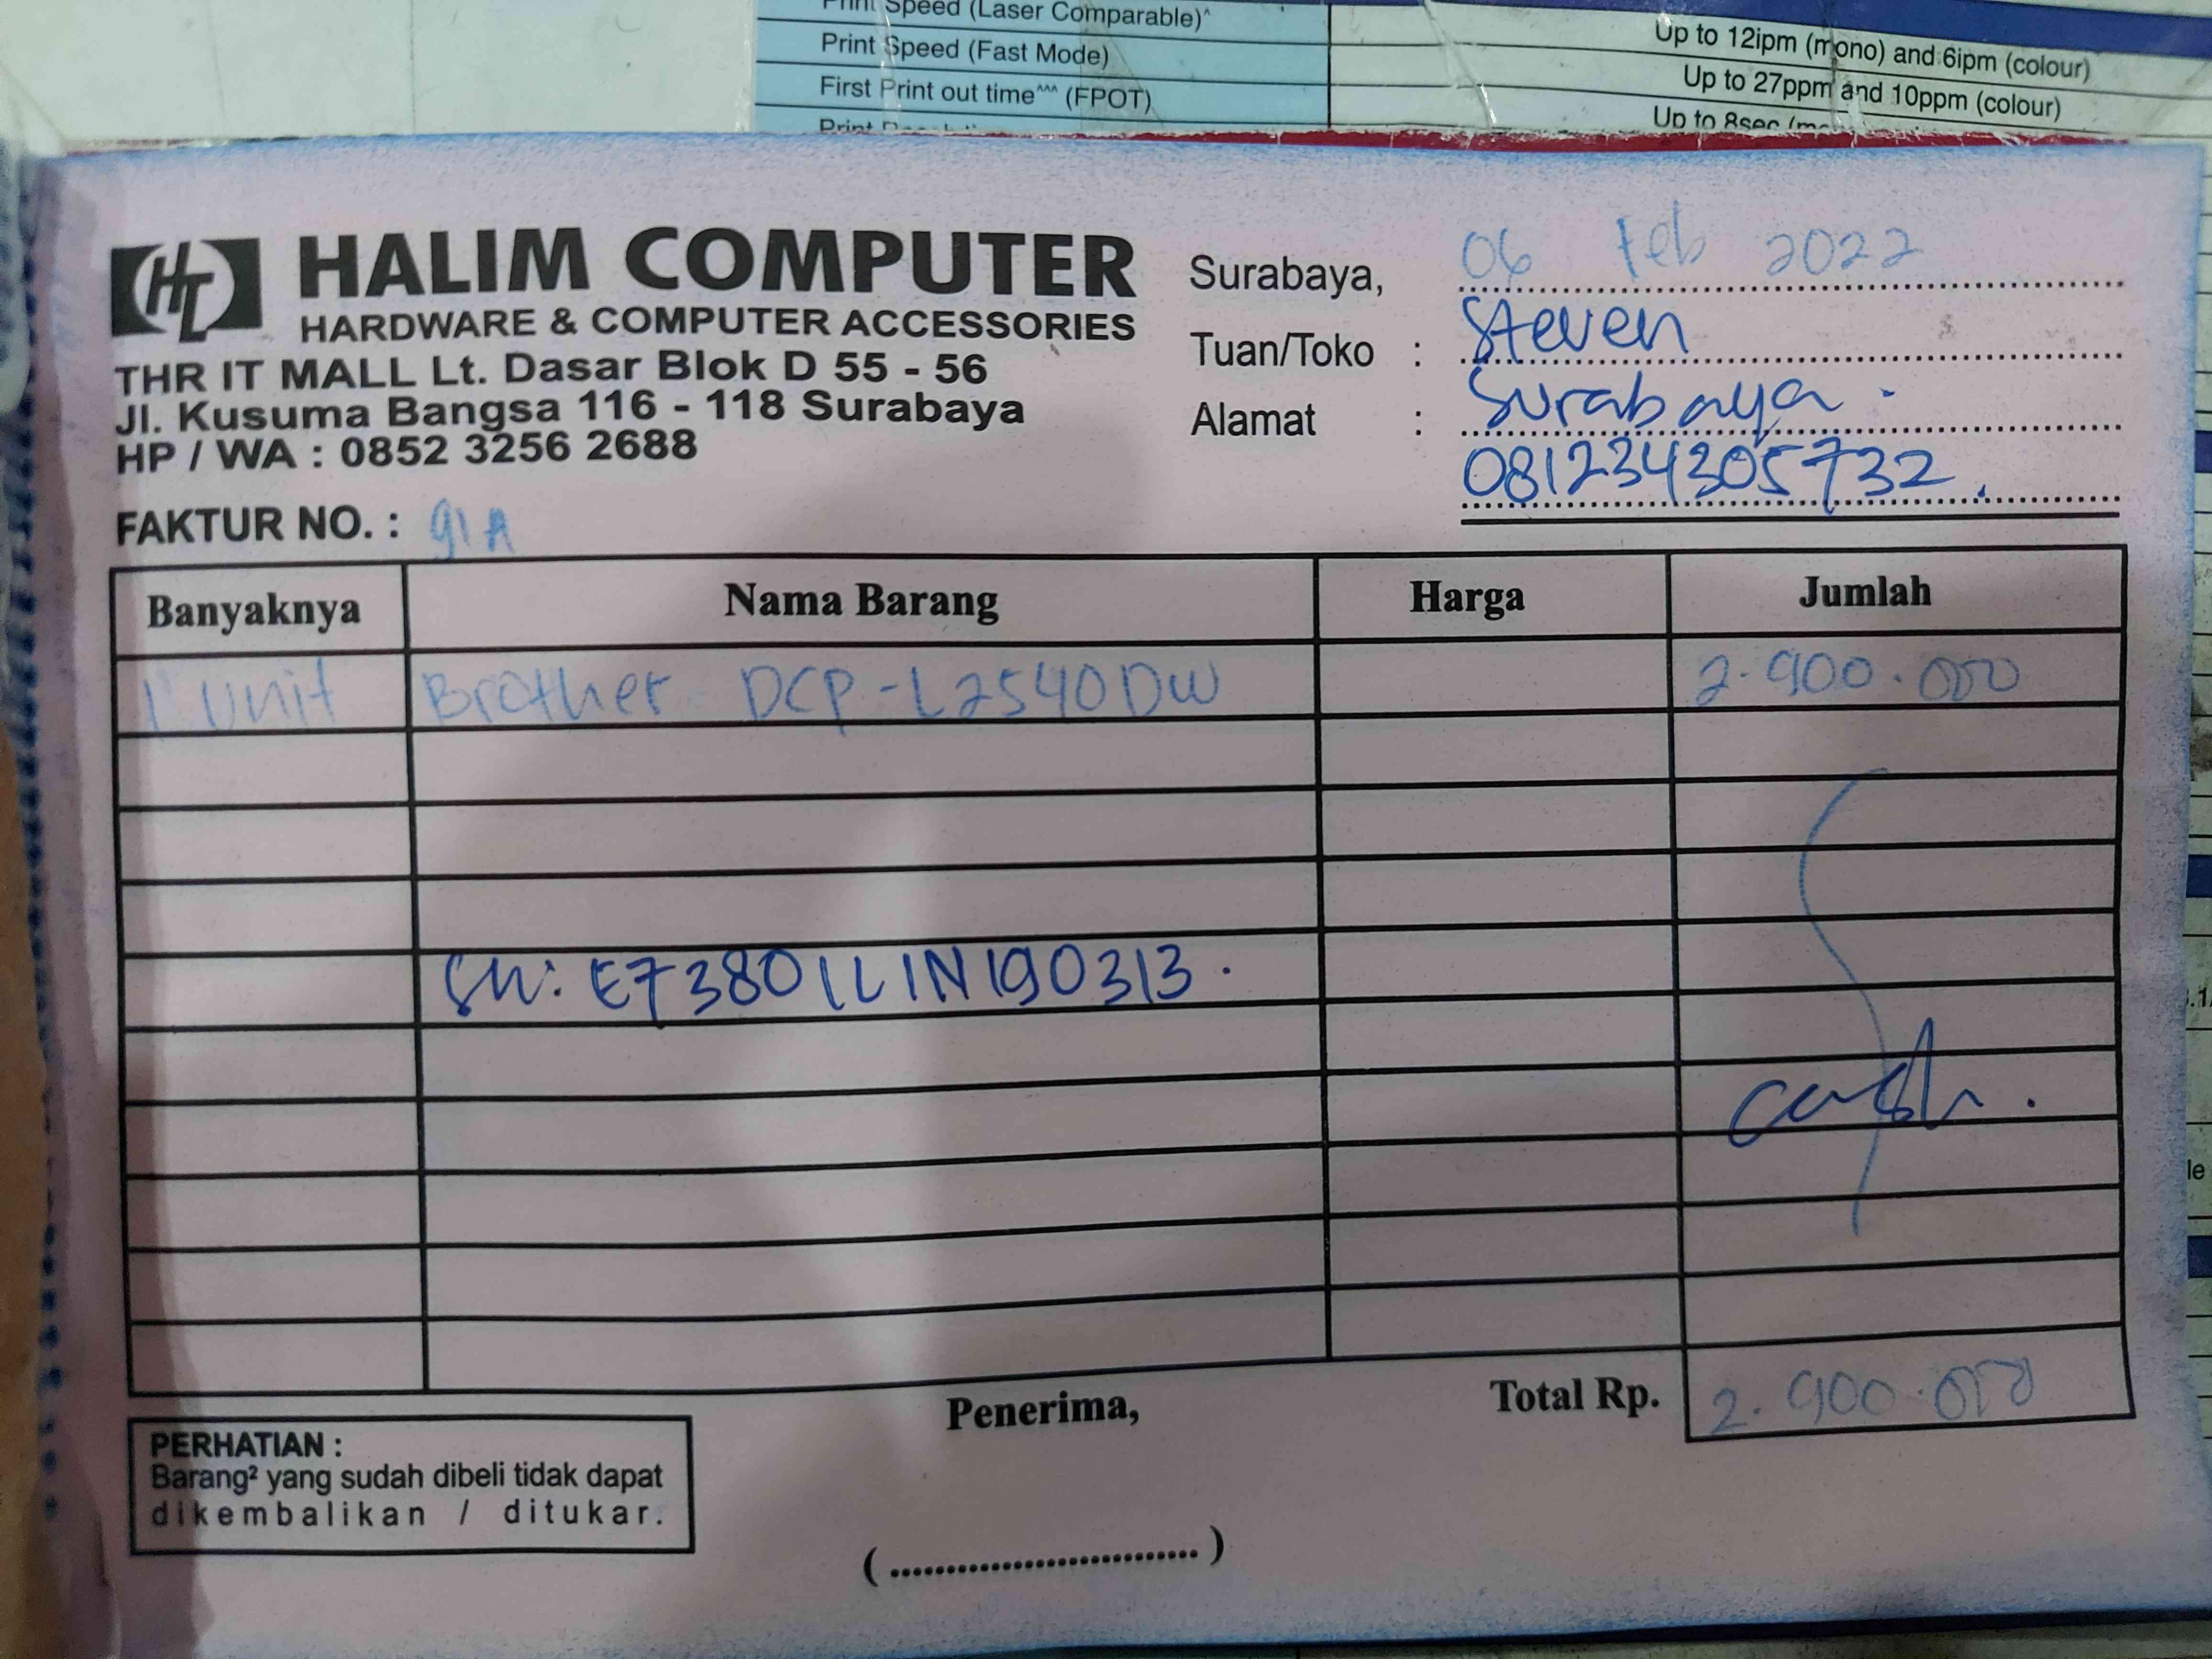 Print Speed (Laser Comparable)^
Up to 12ipm (mono) and 6ipm (colour)
Print Speed (Fast Mode)
Up to 27ppm and 10ppm (colour)
First Print out time^^^ (FPOT)
Up to 8sec
Print
HL HALIM COMPUTER
HARDWARE & COMPUTER ACCESSORIES
THR IT MALL Lt. Dasar Blok D 55 - 56
Jl. Kusuma Bangsa 116 - 118 Surabaya
HP / WA : 0852 3256 2688
FAKTUR NO. : 91A
Surabaya, 06 Feb 2022
Tuan/Toko : Steven
Alamat : Surabaya.
081234305732.
Banyaknya Nama Barang Harga Jumlah
1 Unit Brother DCP-L2540DW 2.900.000
SN: E73801L1N190313.
cash.
Total Rp. 2.900.000
Penerima,
(............................)
PERHATIAN :
Barang² yang sudah dibeli tidak dapat
dikembalikan / ditukar.